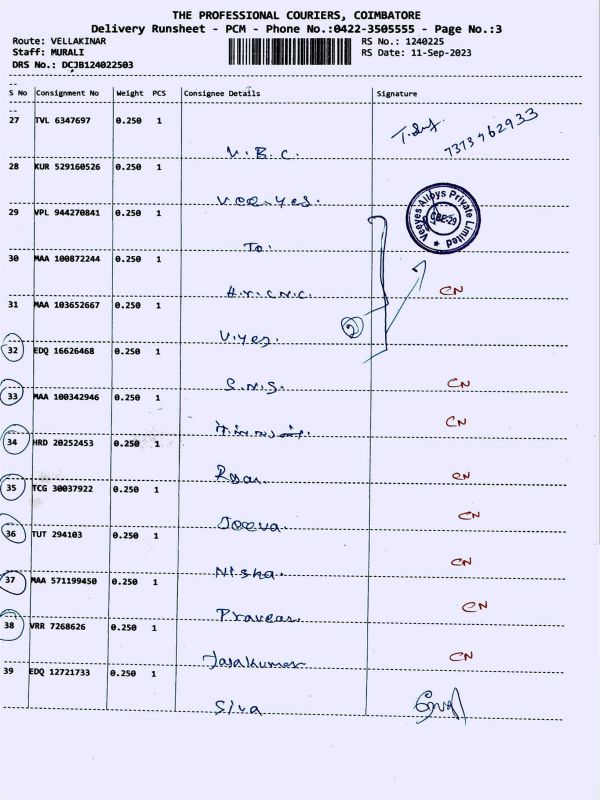 THE PROFESSIONAL COURIERS, COIMBATORE
Delivery Runsheet - PCM - Phone No.:0422-3505555 - Page No.:3
Route: VELLAKINAR RS No.: 1240225
Staff: MURALI RS Date: 11-Sep-2023
DRS No.: DCJB124022503
S No Consignment No Weight PCS Consignee Details Signature
27 TVL 6347697 0.250 1
7373962933
V.B.C.
28 KUR 529160526 0.250 1
V.ee.yes.
Veeyes Alloys Private Limited
CBE-29
29 VPL 944270841 0.250 1
To.
30 MAA 100872244 0.250 1
CN
31 MAA 103652667 0.250 1
2
V.yes.
32 EDQ 16626468 0.250 1
S.N.S. CN
33 MAA 100342946 0.250 1
CN
34 HRD 20252453 0.250 1
CN
35 TCG 30037922 0.250 1
CN
Jeeva.
36 TUT 294103 0.250 1
CN
Nisha.
37 MAA 571199450 0.250 1
CN
Praveen.
38 VRR 7268626 0.250 1
Jayakumar CN
39 EDQ 12721733 0.250 1
Siva